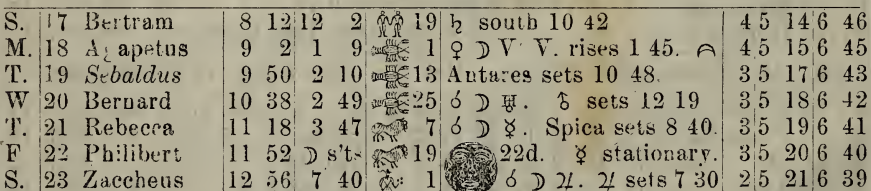 S. 17 Bertram 8 12 12 2 19 ♄ south 10 42 4 5 14 6 46
M. 18 Agapetus 9 2 1 9 1 ♀ ☽ V. rises 1 45. 4 5 15 6 45
T. 19 Sebaldus 9 50 2 10 13 Antares sets 10 48. 3 5 17 6 43
W 20 Bernard 10 38 2 49 25 ☌ ☽ ♅. sets 12 19 3 5 18 6 42
T. 21 Rebecca 11 18 3 47 7 ☌ ☽ ☿. Spica sets 8 40. 3 5 19 6 41
F 22 Philibert 11 52 ☽ s'ts 19 22d. ☿ stationary. 3 5 20 6 40
S. 23 Zaccheus 12 56 7 40 1 ☌ ☽ ♃. ♃ sets 7 30 2 5 21 6 39